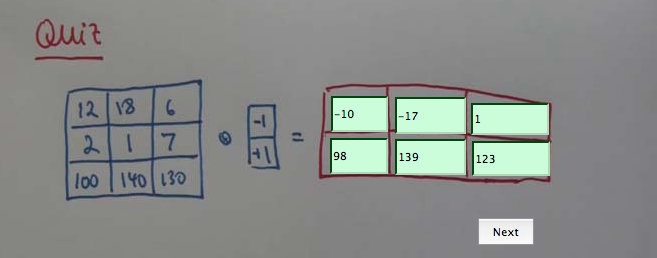 Quiz
12 18 6
2 1 7
100 140 130
-1
+1
=
-10 -17 1
98 139 123
Next